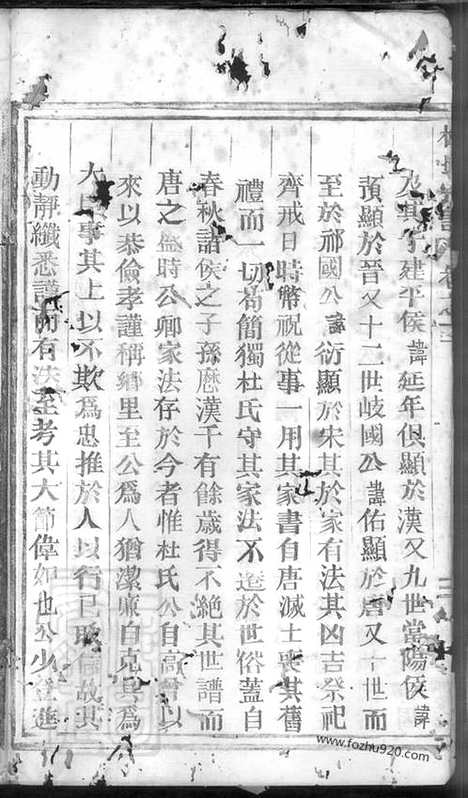 及其子建平侯諱延年俱顯於漢又九世當陽侯諱
預顯於晉又十二世岐國公諱佑顯於唐又十世而
至於祁國公諱衍顯於宋其於家有法其凶吉祭祀
齊戒日時幣祝從事一用其家書自唐滅士喪其舊
禮而一切苟簡獨杜氏守其家法不遷於世俗蓋自
春秋諸侯之子孫歷漢千有餘歲得不絶其世譜而
唐之盛時公卿家法存於今者惟杜氏公自高曾以
來以恭儉孝謹稱鄉里至公為人猶潔廉自克其為
大臣事其上以不欺為忠推於人以行已取信故其
動靜纖悉謹而有法至考其大節偉如也公少登進
www.fozhu920.com